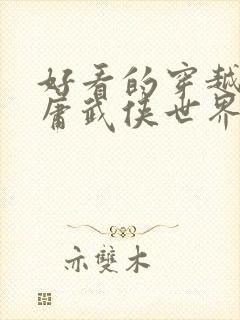 好看的穿越
庸武侠世界
示雙木